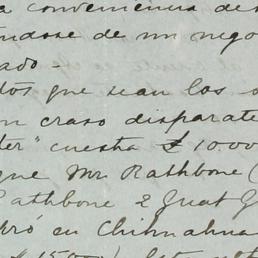 a conveniencia de
ndose de un nego
ado -
tos que sean los
un craso disparate
ter" cuesta £ 1000
que Mr. Rathbone (
Rathbone & Great G
bró en Chihuahua
$ 1500